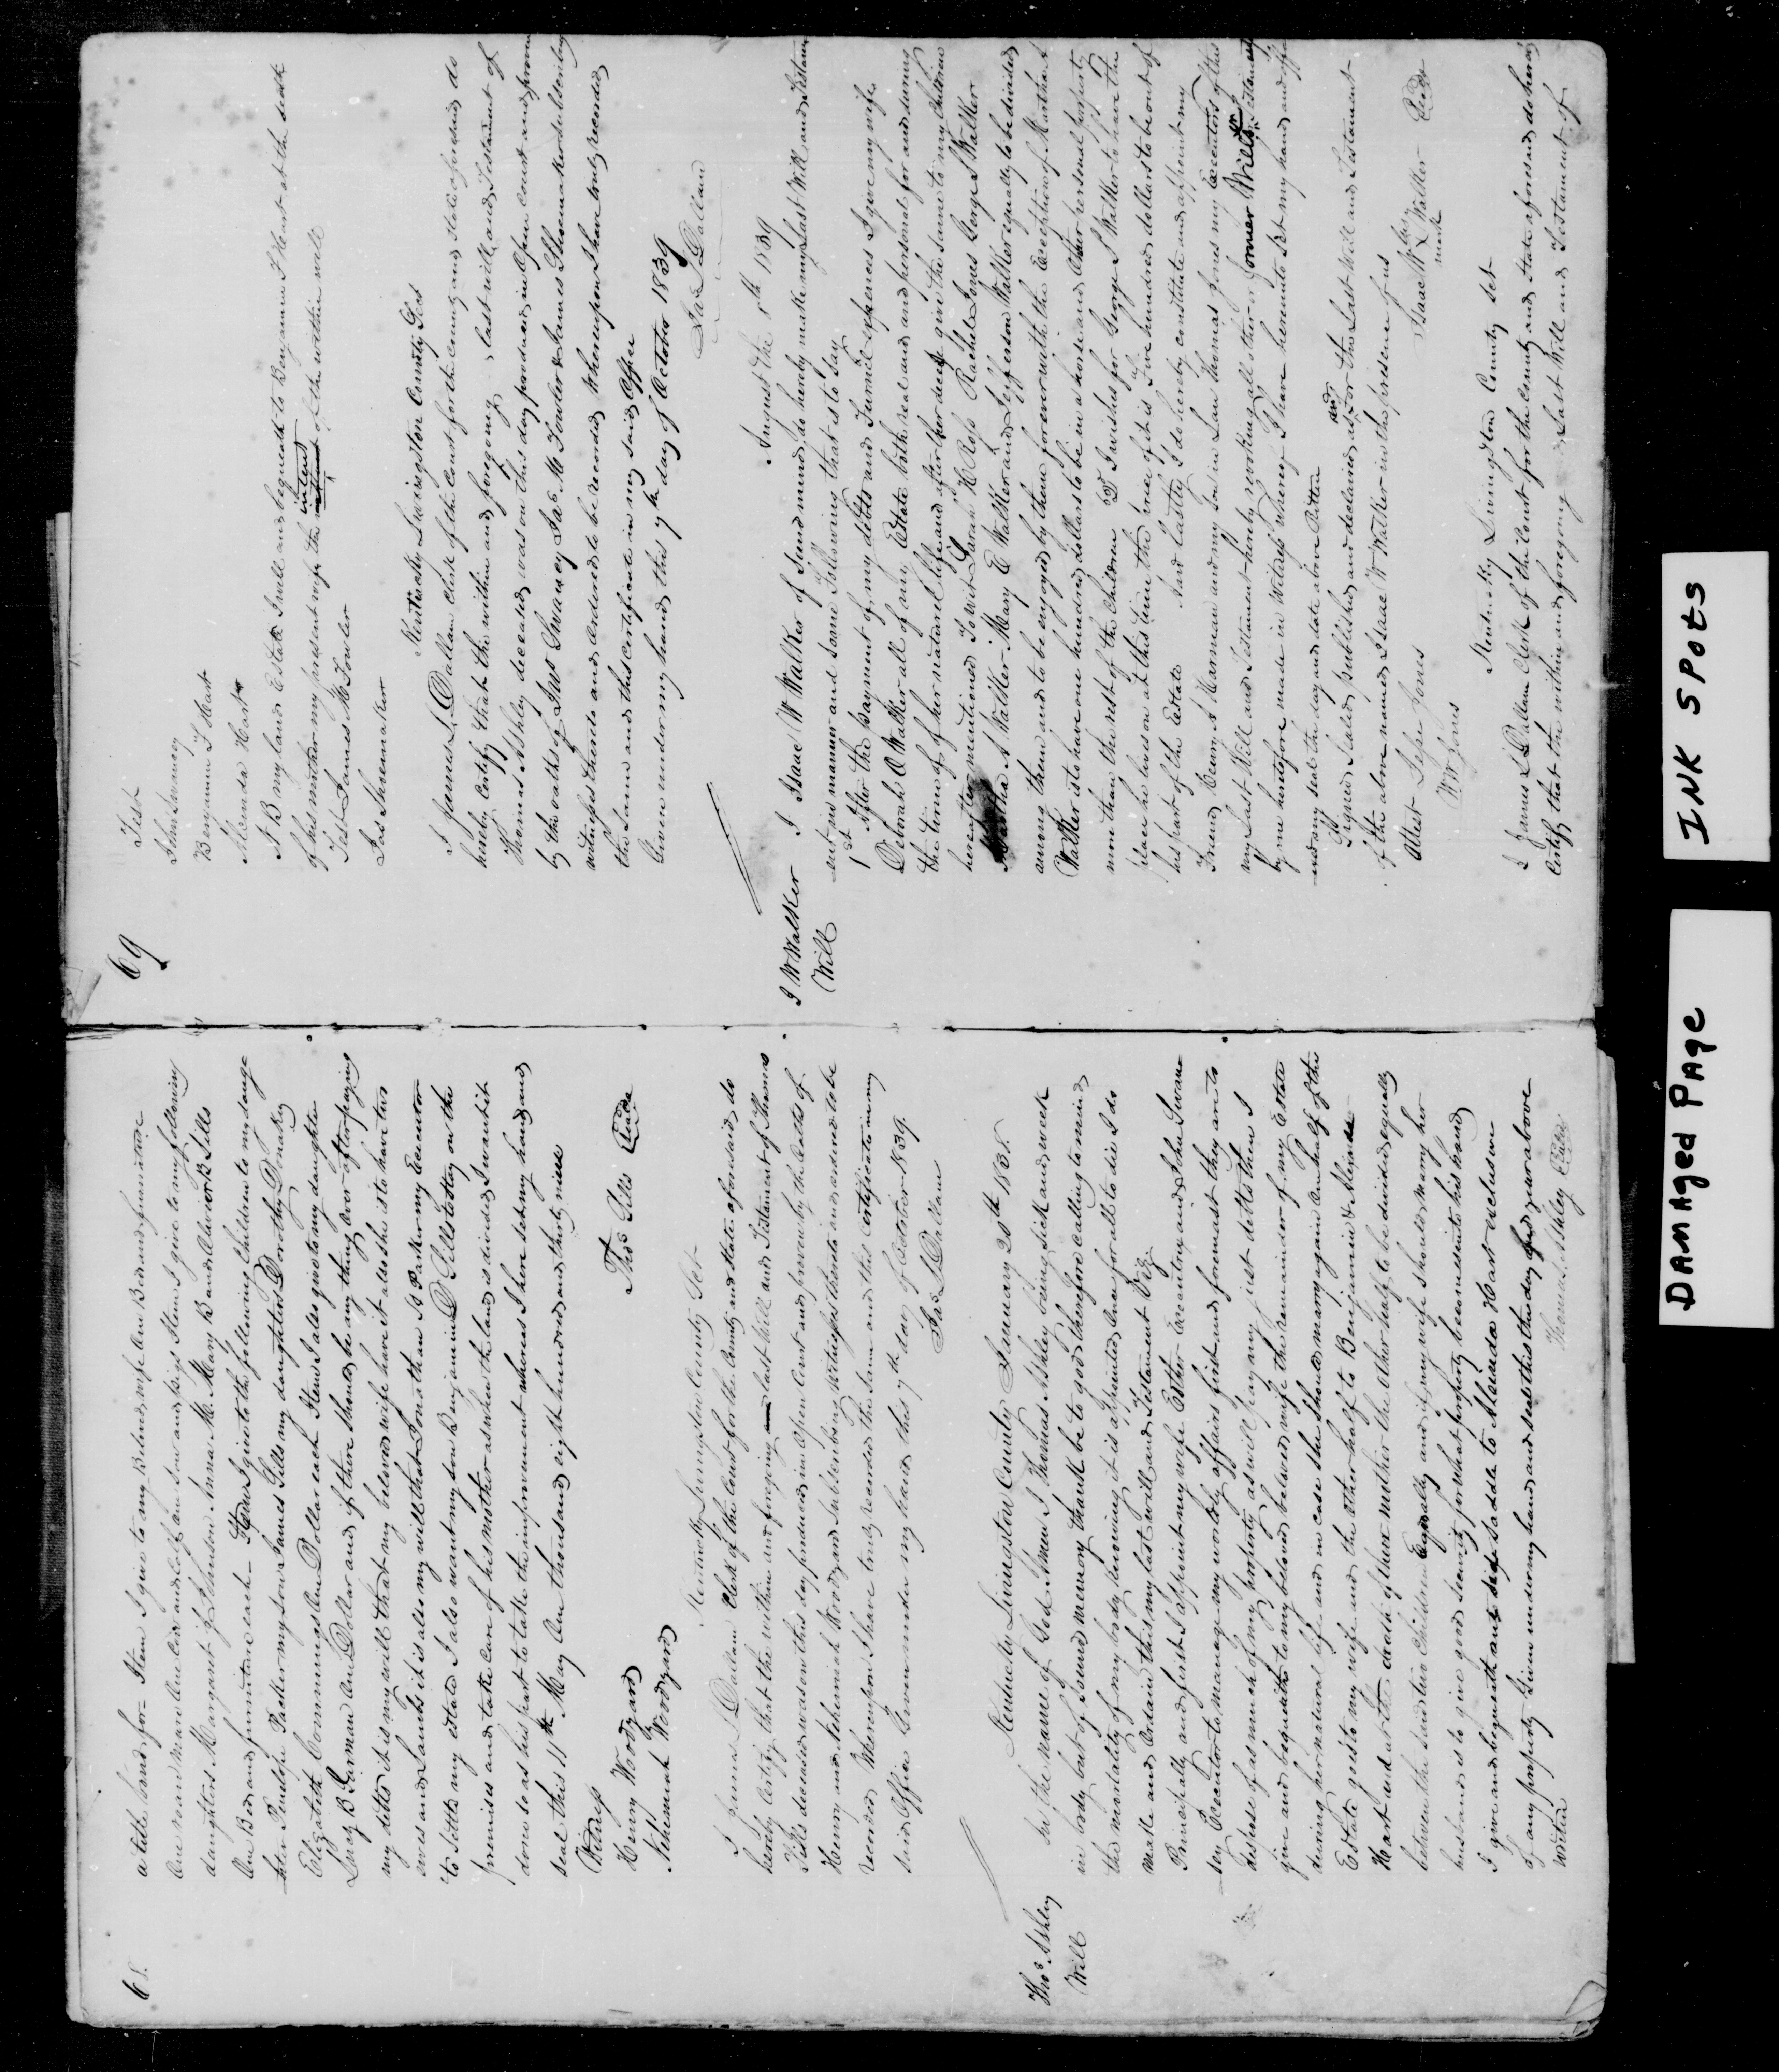 68.
a title bond for - Item I give to my Beloved wife One Bed and furniture
One roan mare One Cow and Calf an Sow and pigs Item I give to my following
daughters Margaret J Johnston Anna M. Mary B and Aldwork B Sills
One Bed and furniture each - Item I give to the following Children to my daugh
ter Penelope Parker my son James Sills my daughters Dorothy Donakey
Elizabeth Cummings One Dollar each Item I also give to my daughter
B Jarman One Dollar and if there should be any thing over after paying
my debts it is my will that my beloved wife have it also she is to have two
cows and Lambs it is also my will that Jonathan A Parker my Executor
to settle my estate I also want my son Benjamin D Sills to stay on the
premises and take care of his mother as when the land is divided I want it
done so as his part to take the improvement whereas I here set my hand and
seal this 11th May One thousand eight hundred and thirty nine
Witness
Thos Sills Seal
Henry Woodyard
Nehemiah Woodyard
Kentucky Livingston County Sct
I James L Dallam Clerk of the Court for the County and State aforesaid do
hereby Certify that the within and foregoing last Will and Testament of Thomas
Sills deceased was on this day produced in Open Court and proven by the Oaths of
Henry and Nehemiah Woodyard subscribing Witnesses thereto and ordered to be
recorded Whereupon I have truly recorded the same and this Certificate in my
said Office Given under my hand this 7th day of October 1839.
Jas L Dallam
Thos Ashley
Will
Kentucky Livingston County January 20th 1838.
In the name of God Amen I Thomas Ashley being sick and weak
in body but of sound memory thanks be to god therefore calling to mind
the mortality of my body knowing it is appointed Once for all to die I do
make and Ordain this my last will and Testament Viz
Principally and first I appoint my wife Esther Executrix and John Swane
sey Executor to manage my worldly affairs first and foremost they are to
dispose of as much of my property as will pay my just debts then I
give and bequeath to my beloved wife the remainder of my Estate
during her natural life and in case she should marry again One half of the
Estate goes to my wife and the other half to Benjamin &
Hart and at the death of there mother the Other half to be divided equally
between the said two Children Equally and if my wife should marry her
husband is to give good security for what property becomes into his hand
I give and bequeath one side Saddle to Alcunda Hart exclusive
of any property Given under my hand and seal this the day and year above
written
Thomas Ashley Seal
69
Test
John Swaney
Benjamin T Hart
Alcunda Hart
N B my land Estate I will and bequeath to Benjamin T Hart at the death
of his mother my present wife the intent of the within will
Test James M Fowler
Jas Shoemaker
Kentucky Livingston County Sct
I James L Dallam Clerk of the Court for the County and State aforesaid do
hereby Certify that the within and foregoing last will and Testament of
Thomas Ashley deceased was on this day produced in Open Court and proven
by the oaths of Jno Swaney Jas M Fowler & James Shoemaker subscribing
witnesses thereto and Ordered to be recorded Whereupon I have truly recorded
the same and this Certificate in my said Office
Given under my hand this 7th day of October 1839
Jas L Dallam
I W Walker
Will
August the 8th 1839
I Isaac W Walker of Sound mind do hereby make my Last Will and Testam
ent in manner and some Following that is to say
1st After the Payment of my debts and Funeral expences I give my wife
Deborah O Walker all of my Estate both real and and personal for and during
the time of her natural life and after her death give the same to my Children
hereafter mentioned To wit Sarah H Ross Rachel Jones George S Walker
Martha A Walker Mary E Walker and Jefferson Walker equally to be divided
among them and to be enjoyed by them forever with the Exception of Martha A
Walker is to have one hundred dollars to be in a horse and Other personal property
more than the rest of the Children 2d I wishes for George S Walker to have the
place he lives on at this time the price of it is Five hundred dollars to be out of
his part of the Estate And lastly I do hereby constitute and appoint my
Friend Henry S Harman and my Son in Law Thomas Jones my Executors of this
my Last Will and Testament hereby revoking all other or former Wills or Testaments
by me heretofore made in Witness whereof I have hereunto set my hand and affix
ed my seal the day and date above Written
Signed Sealed published and declared as and for the Last Will and Testament
of the above named Isaac W Walker in the presence of us
Attest Jesse Jones
W W Jones
Isaac W his X mark Walker Seal
Kentucky Livingston County Sct
I James L Dallam Clerk of the Court for the County and State aforesaid do hereby
Certify that the within and foregoing Last Will and Testament of
DAMAGED PAGE
INK SPOTS